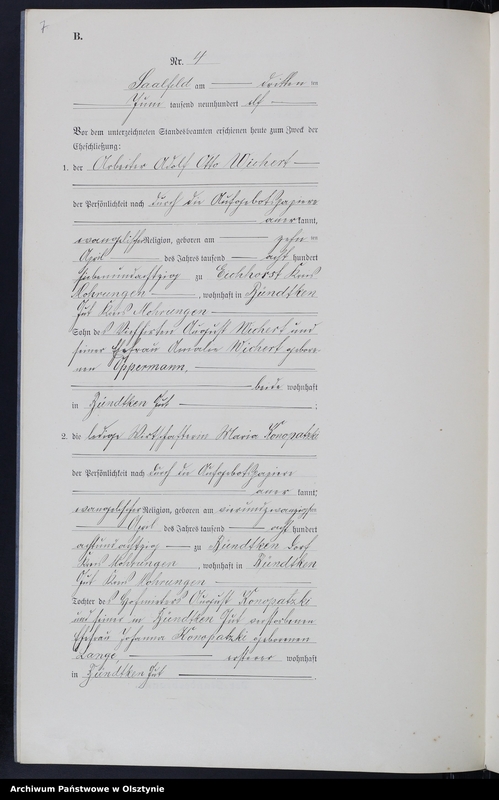 7
B.
Nr. 4
Saalfeld am dritten ten
Juni tausend neunhundert elf
Vor dem unterzeichneten Standesbeamten erschienen heute zum Zweck der
Eheschließung:
1. der Arbeiter Adolf Otto Wichert
der Persönlichkeit nach durch die Aufgebotspapiere
anerkannt,
evangelischer Religion, geboren am zehn ten
April des Jahres tausend acht hundert
siebenundachtzig zu Eichhorst Kreis
Mohrungen, wohnhaft in
Gut Kreis Mohrungen
Sohn des August Wichert und
seiner Ehefrau Amalie Wichert gebore
nen Oppermann,
beide wohnhaft
in Gut ;
2. die ledige Maria Konopatzki
der Persönlichkeit nach durch die Aufgebotspapiere
anerkannt,
evangelischer Religion, geboren am vierundzwanzigsten
April des Jahres tausend acht hundert
achtundachtzig zu Dorf
Kreis Mohrungen, wohnhaft in
Gut Kreis Mohrungen
Tochter des August Konopatzki
und seiner in Gut verstorbenen
Ehefrau Johanna Konopatzki geborenen
Lange, ersterer wohnhaft
in Gut .
Archiwum Państwowe w Olsztynie